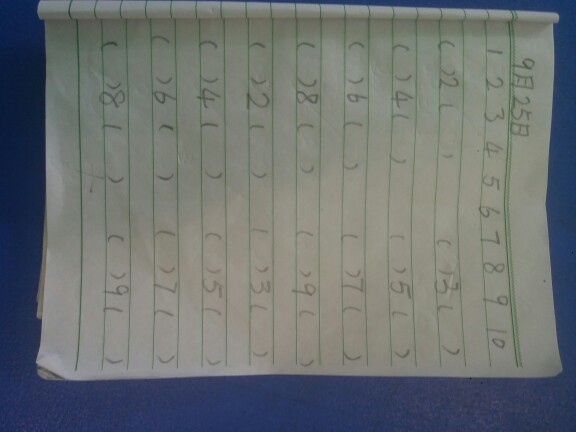 9月25日
1 2 3 4 5 6 7 8 9 10
( )2( ) ( )3( )
( )4( ) ( )5( )
( )6( ) ( )7( )
( )8( ) ( )9( )
( )2( ) ( )3( )
( )4( ) ( )5( )
( )6( ) ( )7( )
( )8( ) ( )9( )